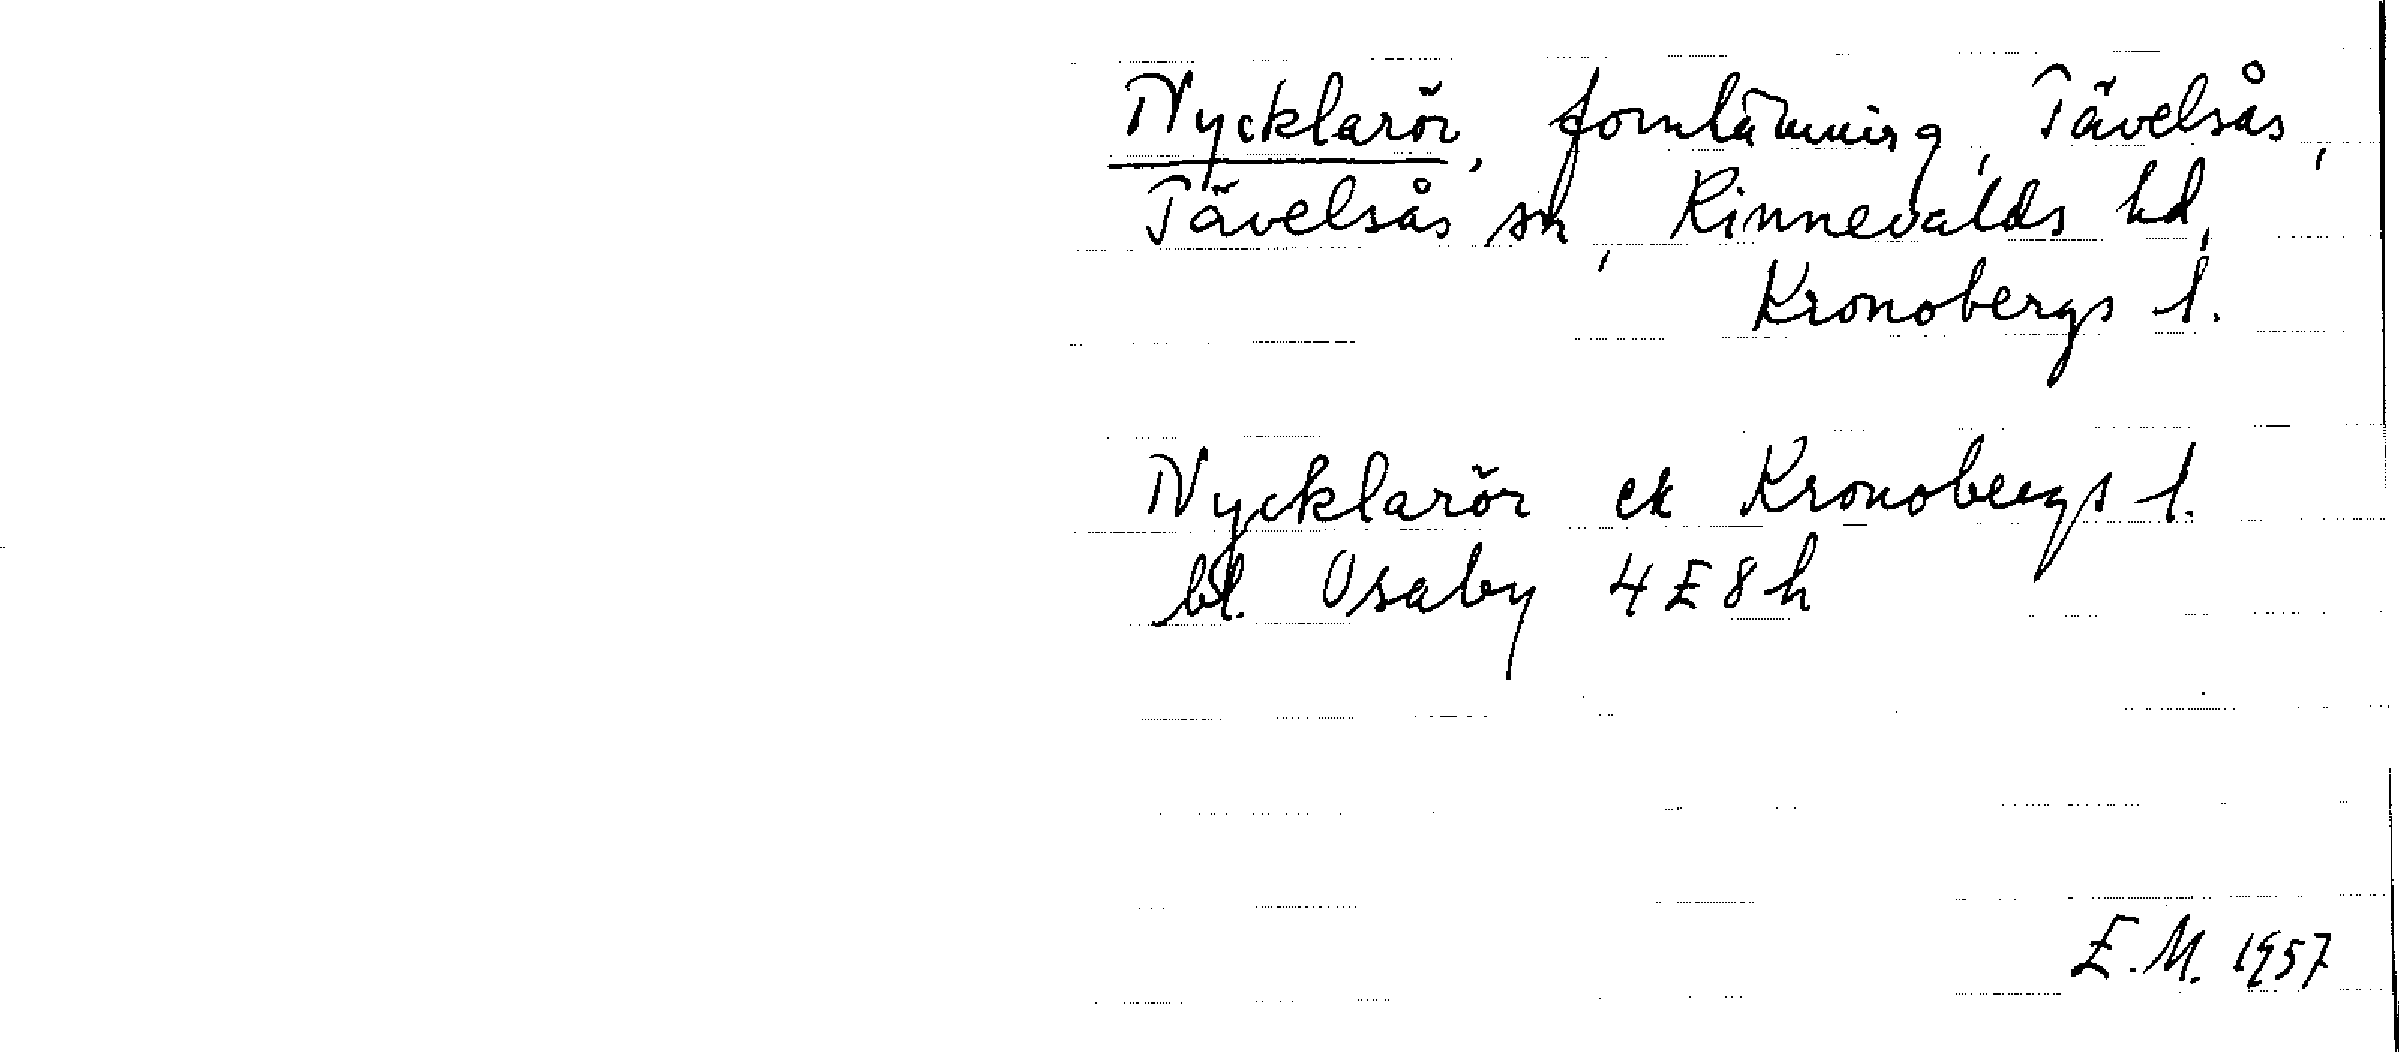 Nycklarör, fornlämning, Tävelsås,
Tävelsås sn, Kinnevalds hd,
Kronobergs l.
Nycklarör ek Kronobergs l.
bl. Osaby 4E8h
E.M. 1957